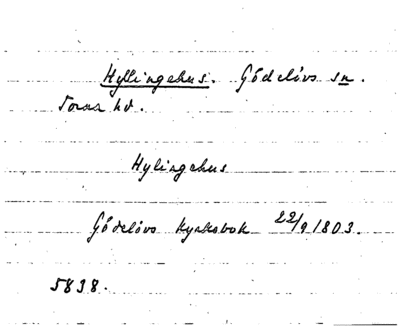 Hyllingehus. Gödelövs sn.
Torna hd.
Hylingehus
Gödelövs kyrkobok 22/9 1803.
5838.